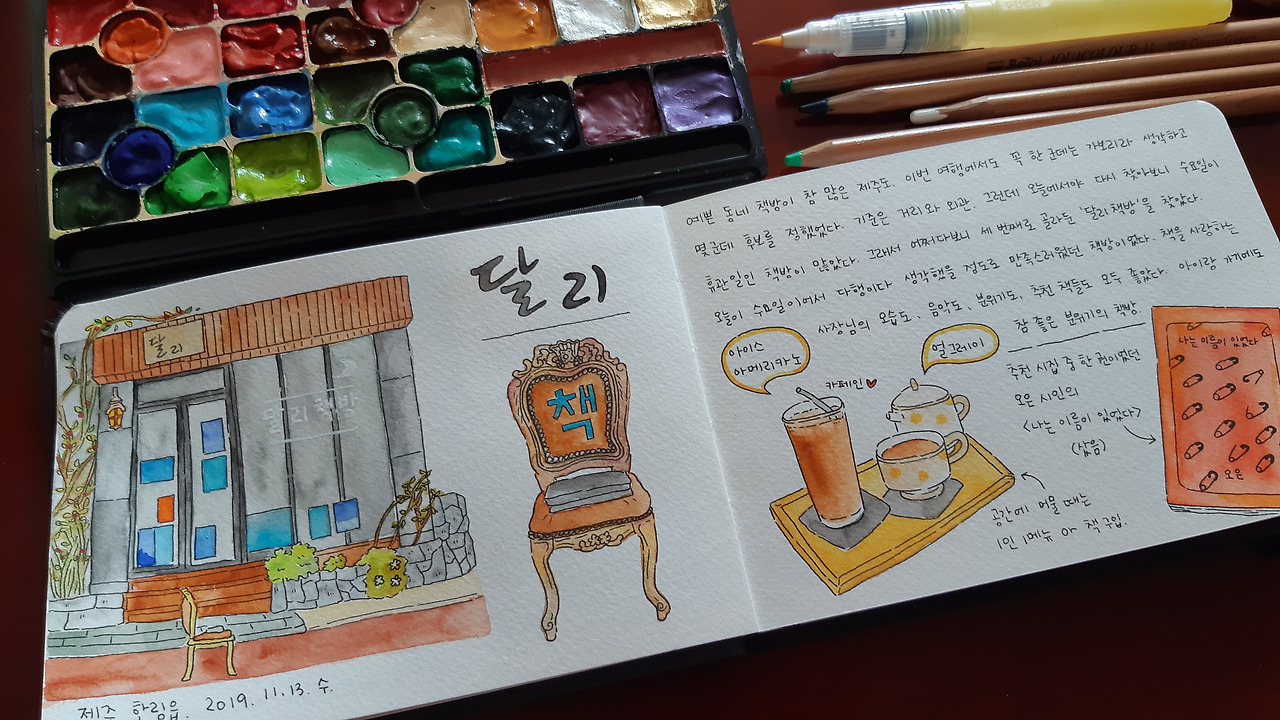 달리
달리책방
달리
책
제주 한림읍. 2019. 11. 13. 수.
예쁜 동네 책방이 참 많은 제주도. 이번 여행에서도 꼭 한 군데는 가보리라 생각하고
몇군데 후보를 정했었다. 기준은 거리와 외관. 그런데 오늘에서야 다시 찾아보니 수요일이
휴관일인 책방이 많았다. 그래서 어쩌다보니 세 번째로 골라둔 '달리책방'을 찾았다.
오늘이 수요일이어서 다행이다 생각했을 정도로 만족스러웠던 책방이었다. 책을 사랑하는
사장님의 모습도, 음악도, 분위기도, 추천 책들도 모두 좋았다. 아이랑 가기에도
참 좋은 분위기의 책방.
아이스
아메리카노
카페인
얼그레이
추천 시집 중 한 권이었던
오은 시인의
<나는 이름이 있었다>
(샀음)
공간에 머물 때는
1인 1메뉴 or 책 구입.
나는 이름이 있었다
오은